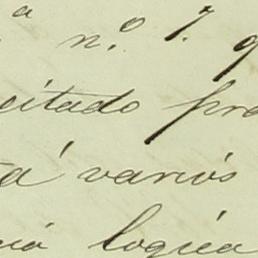 a n.º 7. 9
citado pro
tá varios
ia logica